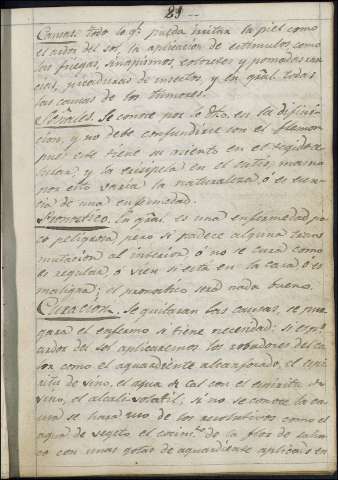 29
Causas: todo lo q.e pueda irritar la piel como
el ardor del sol, la aplicacion de estimulos, como
las friegas, sinapismos, coloretes y pomadas ran-
cias, picaduras de insectos, y en gral. todas
las causas de los tumores.
Señales. Se conoce por lo dho. en la difini-
cion, y no debe confundirse con el flemon
pues este tiene su asiento en el tegido ce-
lular, y la erisipela en el cutis, mas no
por esto varia la naturaleza ó es esen-
cia de una enfermedad.
Pronostico. En gral. es una enfermedad po-
co peligrosa pero si padece alguna trans
mutacion al interior, ó no se cura como
es regular, ó vien si está en la cara ó es
maligna; el pronostico será nada bueno.
Curación. Se quitaran las causas, se pur-
gara el enfermo si tiene necesidad: si es p.r
ardor del sol aplicaremos los robadores del ca-
lor como el aguardiente alcanforado, el espi-
ritu de vino, el agua de cal con el espiritu de
vino, el alcali volatil; si no se conoce la ca-
usa se hará uso de los resolutivos como el
agua de vegeto el cocim.to de la flor de sahu-
co con unas gotas de aguardiente aplicado en